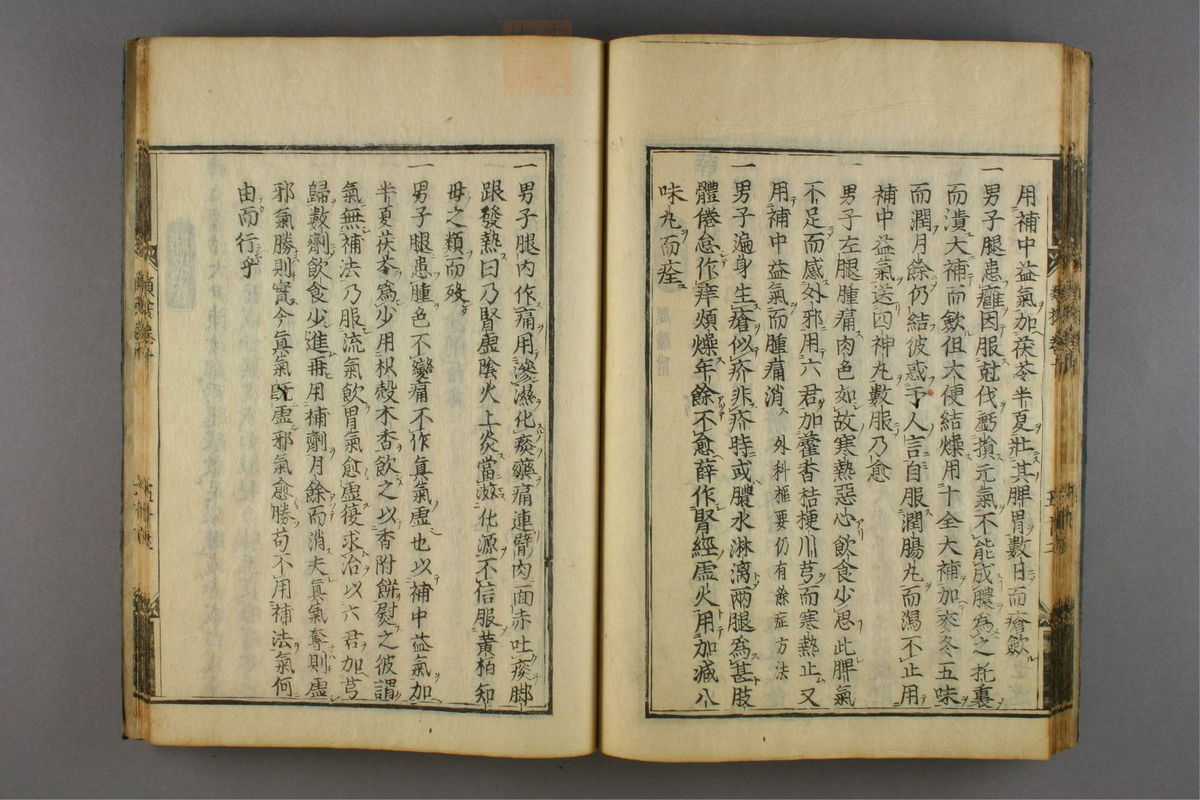 用補中益氣加茯苓半夏壯其脾胃數日而瘡歛
一男子腿患癰因服尅伐虧損元氣不能成膿為之托裏
而潰大補而歛但大便結燥用十全大補加麥冬五味
而潤月餘仍結彼惑于人言自服潤腸丸而瀉不止用
補中益氣送四神丸數服乃愈
一男子左腿腫痛肉色如故寒熱惡心飲食少思此脾氣
不足而感外邪用六君加藿香桔梗川芎而寒熱止又
用補中益氣而腫痛消 外科樞要仍有餘症方法
一男子遍身生瘡似疥非疥時或膿水淋漓兩腿為甚肢
體倦怠作痒煩燥年餘不愈薛作腎經虛火用加减八
味丸而痊
一男子腿內作痛用滲濕化痰藥痛連臀內面赤吐痰脚
跟發熱曰乃腎虛陰火上炎當滋化源不信服黃柏知
母之類而殁
一男子腿患腫色不變痛不作真氣虛也以補中益氣加
半夏茯苓為少用枳殼木香飲之以香附餅熨之彼謂
氣無補法乃服流氣飲胃氣愈虛後求治以六君加芎
歸數劑飲食少進再用補劑月餘而消夫真氣奪則虛
邪氣勝則實今真氣既虛邪氣愈勝苟不用補法氣何
由而行乎